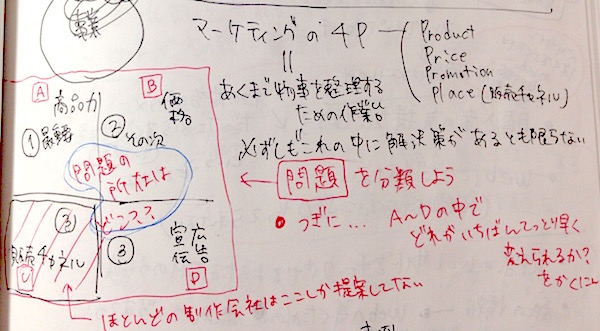 事業
マーケティングの4P
Product
Price
Promotion
Place (販売チャネル)
||
あくまで物事を整理する
ための作業。
必ずしもこれの中に解決策があるとも限らない
A
商品力
① 最重要
B
価格。
② その次
問題の
所在は
どこ??
③
販売チャネル
C
③
宣伝
広告
D
← 問題 を分類しよう
● つぎに… A〜Dの中で
どれがいちばんてっとり早く
変えられるか?
をかくにん
ほとんどの制作会社はここしか提案してない